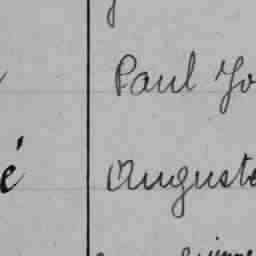 Paul Jo
é Auguste